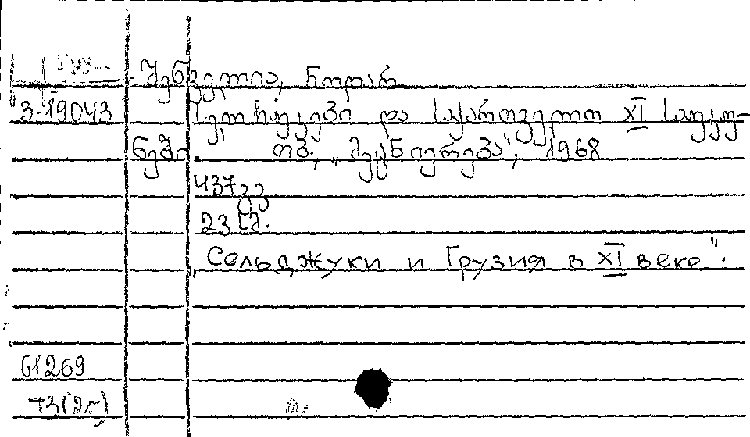 შენგელია, ნოდარ
3-19043 სელჩუკები და საქართველო XI საუკუ-
ნეში. თბ., „მეცნიერება", 1968
437 გვ.
23 სმ.
„Сельджуки и Грузия в XI веке".
G1269